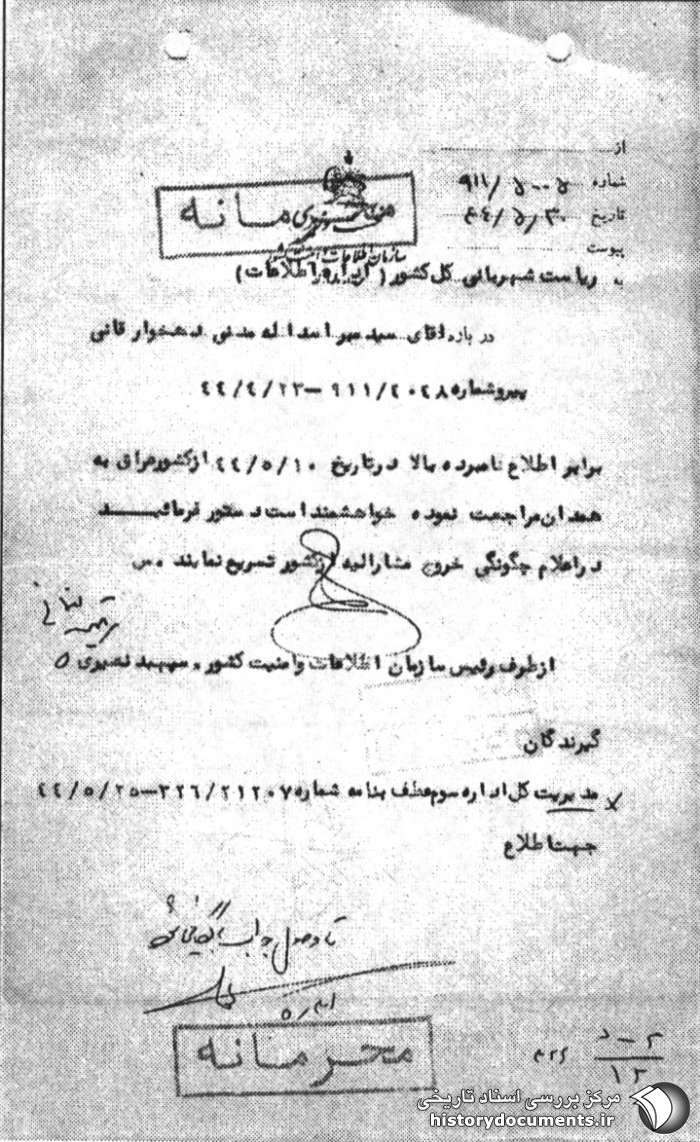 از
شماره ۵۰۰۵ / ۹۱۱
تاریخ ۴۴/۵/۳۰
پیوست
محرمانه
سازمان اطلاعات و امنیت کشور
به ریاست شهربانی کل کشور (اداره اطلاعات)
درباره آقای سید میر اسداله مدنی دهخوارقانی
پیرو شماره ۹۱۱/۴۰۴۸ – ۴۴/۴/۲۳
برابر اطلاع نامبرده بالا در تاریخ ۴۴/۵/۱۰ از کشور عراق به
همدان مراجعت نموده خواهشمند است دستور فرمائید
در اعلام چگونگی خروج مشارالیه از کشور تسریع نمایند .س
از طرف رئیس سازمان اطلاعات و امنیت کشور . سپهبد نصیری
گیرندگان
مدیریت کل اداره سوم عطف بنامه شماره ۳۲۶/۲۱۲۰۷–۴۴/۵/۲۵
جهت اطلاع
تا وصول جواب بایگانی
محرمانه
مرکز بررسی اسناد تاریخی
historydocuments.ir